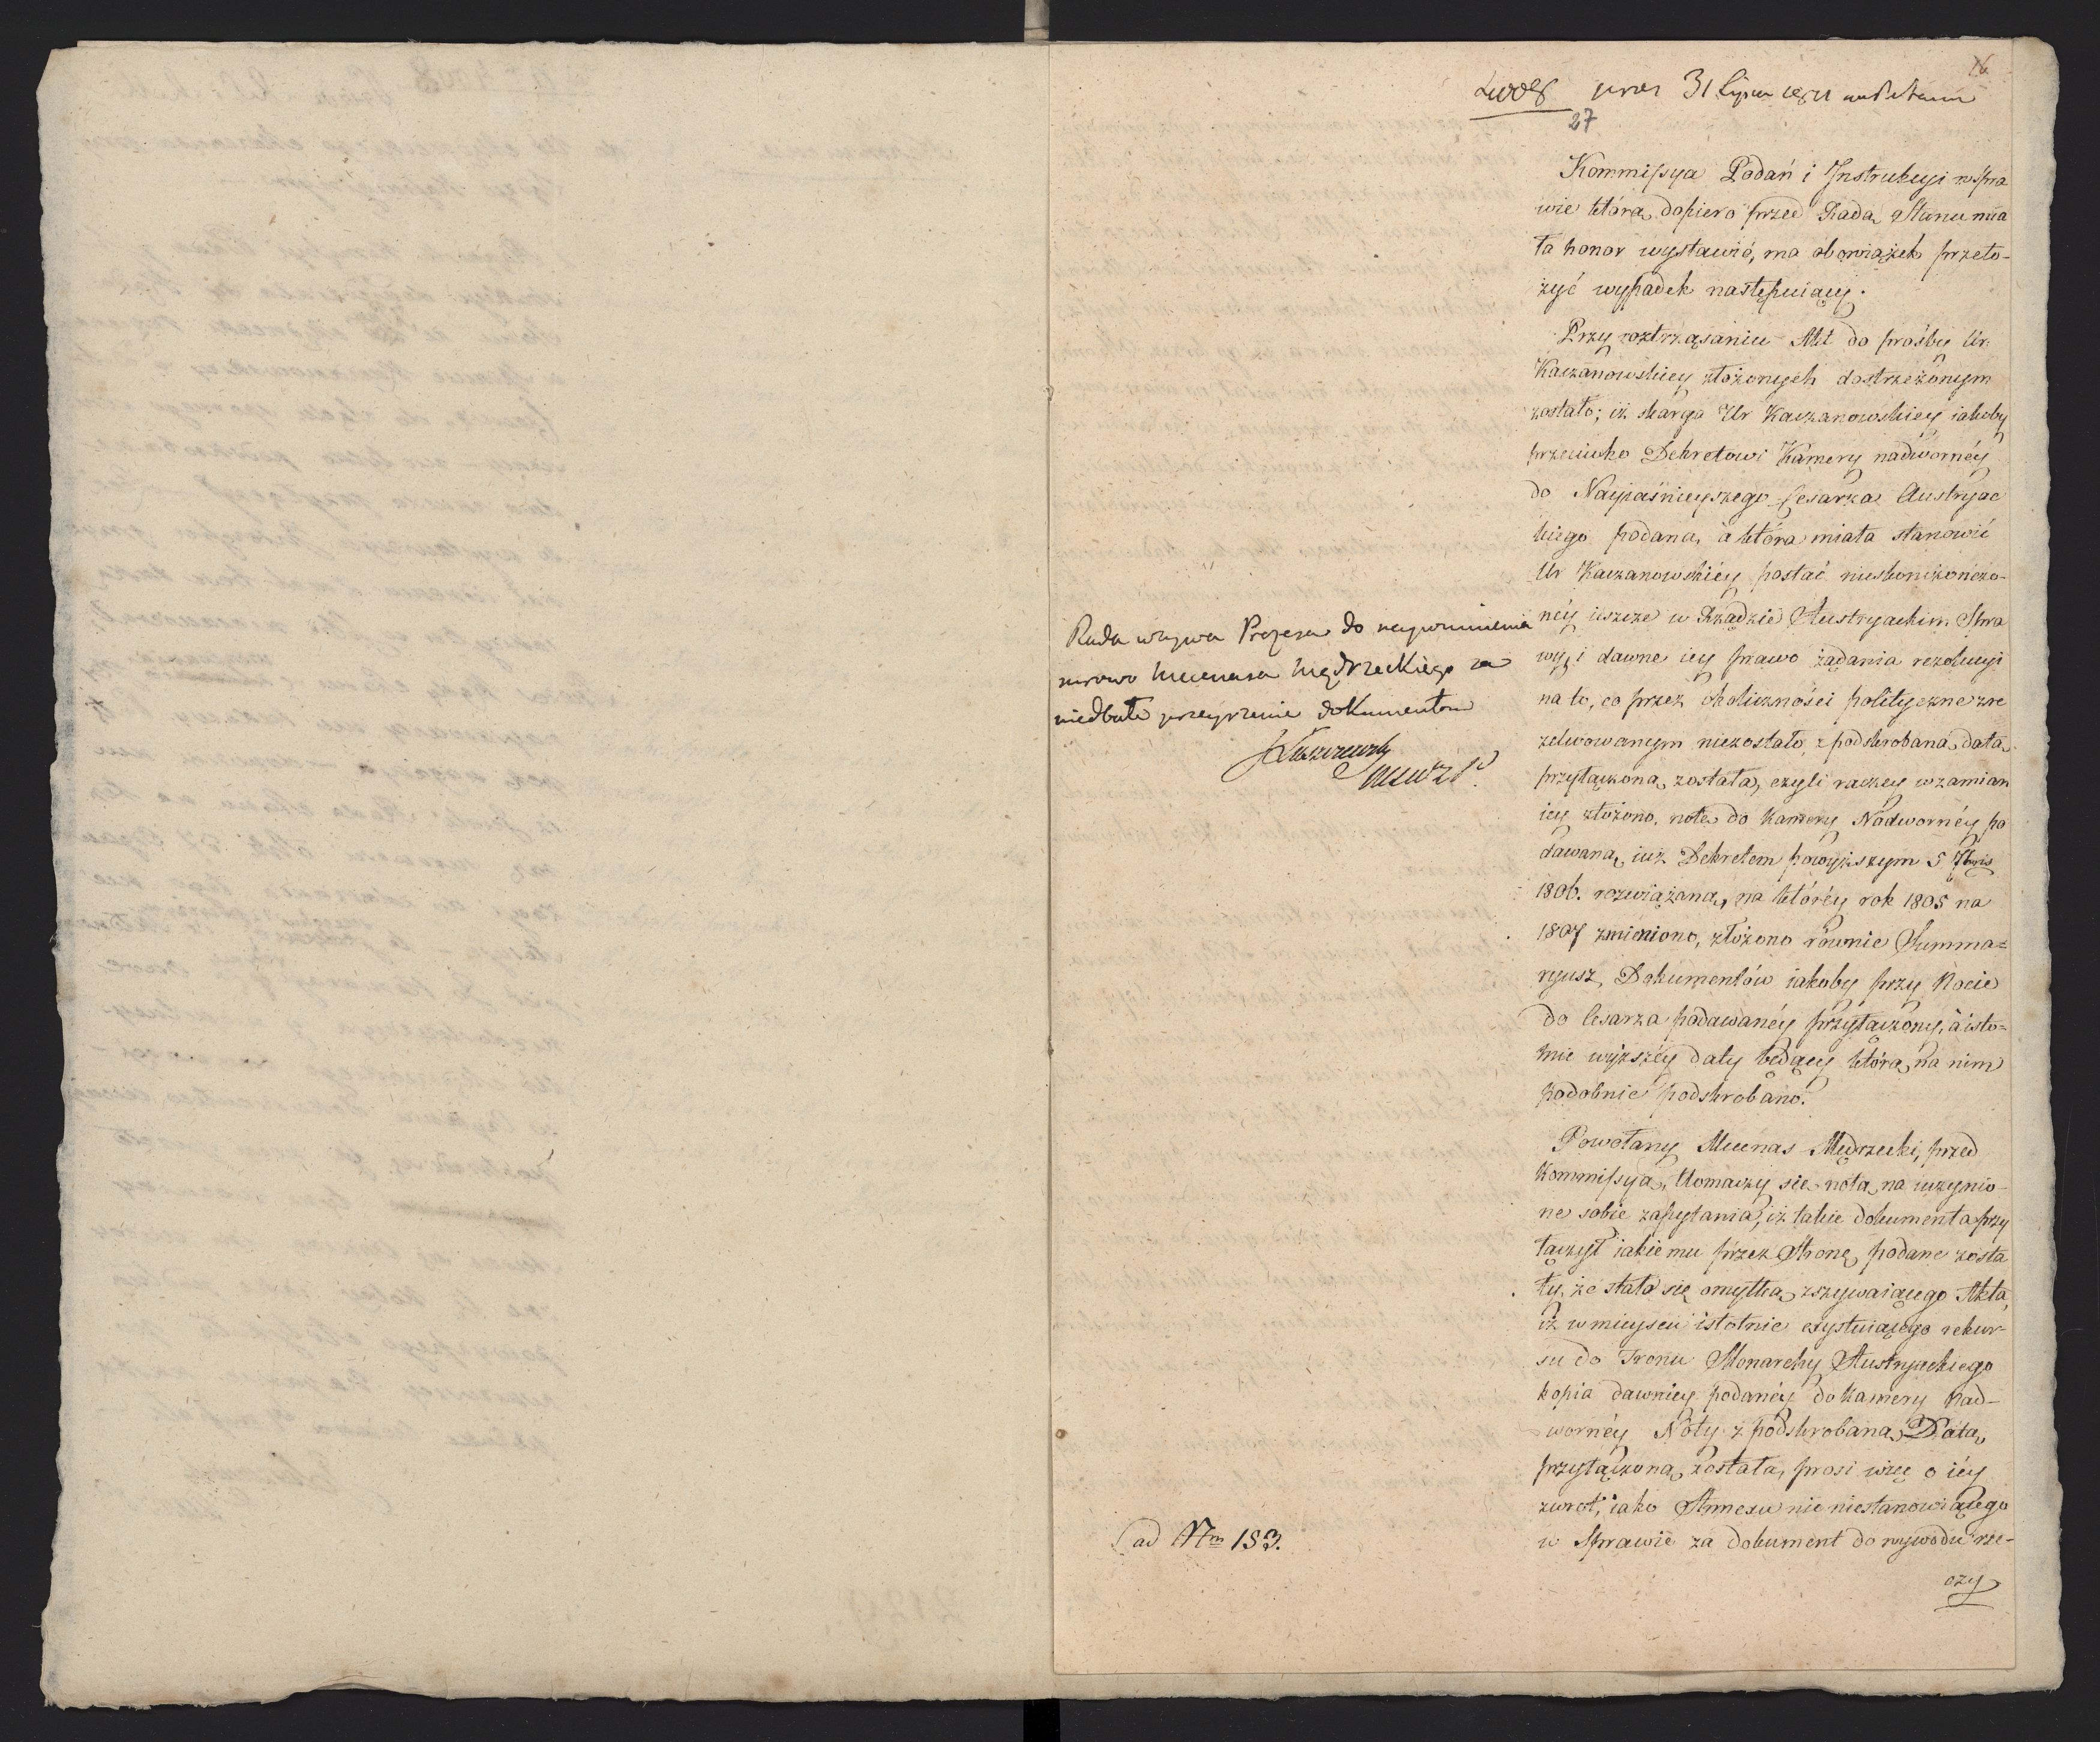 16
31 lipca
27
Kommissya Podań i Instrukcyi w spra
wie którą dopiero przed Radą Stanu mia
ła honor wystawić, ma obowiązek przeło-
żyć wypadek następuiący.
Przy roztrząsaniu Akt do prośby Ur.
Kaczanowskiey złożonych dostrzeżonym
zostało; iż skarga Ur Kaczanowskiey iakoby
przeciwko Dekretowi Kamery nadwornéy
do Nayiaśnieyszego Cesarza Austryac
kiego podana, a która miała stanowić
Ur Kaczanowskiéy postać nieskończo-
néy ieszcze w Rządzie Austryackim Spra
wy, i dawne iey prawo żądania rezolucyi
na to, co przez okoliczności polityczne zre
zolwowanym niezostało, z podskrobaną datą
przyłączoną została, czyli raczey w zamian
iey złożono notę do Kamery Nadwornéy po
dawaną, iuż Dekretem powyższym 5 7bris
1806. rozwiązaną, na któréy rok 1805 na
1807 zmieniono, złożono równie Summa=
ryusz, Dokumentów iakoby przy Nocie
do Cesarza podawanéy przyłączony, a isto=
tnie wyższéy daty będący którą na nim
podobnie podskrobano.
Powołany Mecenas Mędrzecki, przed
Kommissyą, tłomaczy się notą na uczynio-
ne sobie zapytania, iż takie dokumenta przy
łączył iakie mu przez Stronę podane zosta
ły, że stało się omyłką zszywaiącego Akta,
iż w mieyscu istotnie exystuiącego rekur-
su do Tronu Monarchy Austryackiego
kopia dawniey podanéy do Kamery Nad-
wornéy Noty z podskrobaną Datą,
przyłączoną została, prosi więc o iéy
zwrot, iako Annexu nic niestanowiącego
w Sprawie za dokument do wywodu rze-
czy
Rada wzywa Prezesa do napomnienia
surowo Mecenasa Mędrzeckiego za
niedbałe przeyrzenie dokumentów
Łuszczewski
ad Nrm 153.